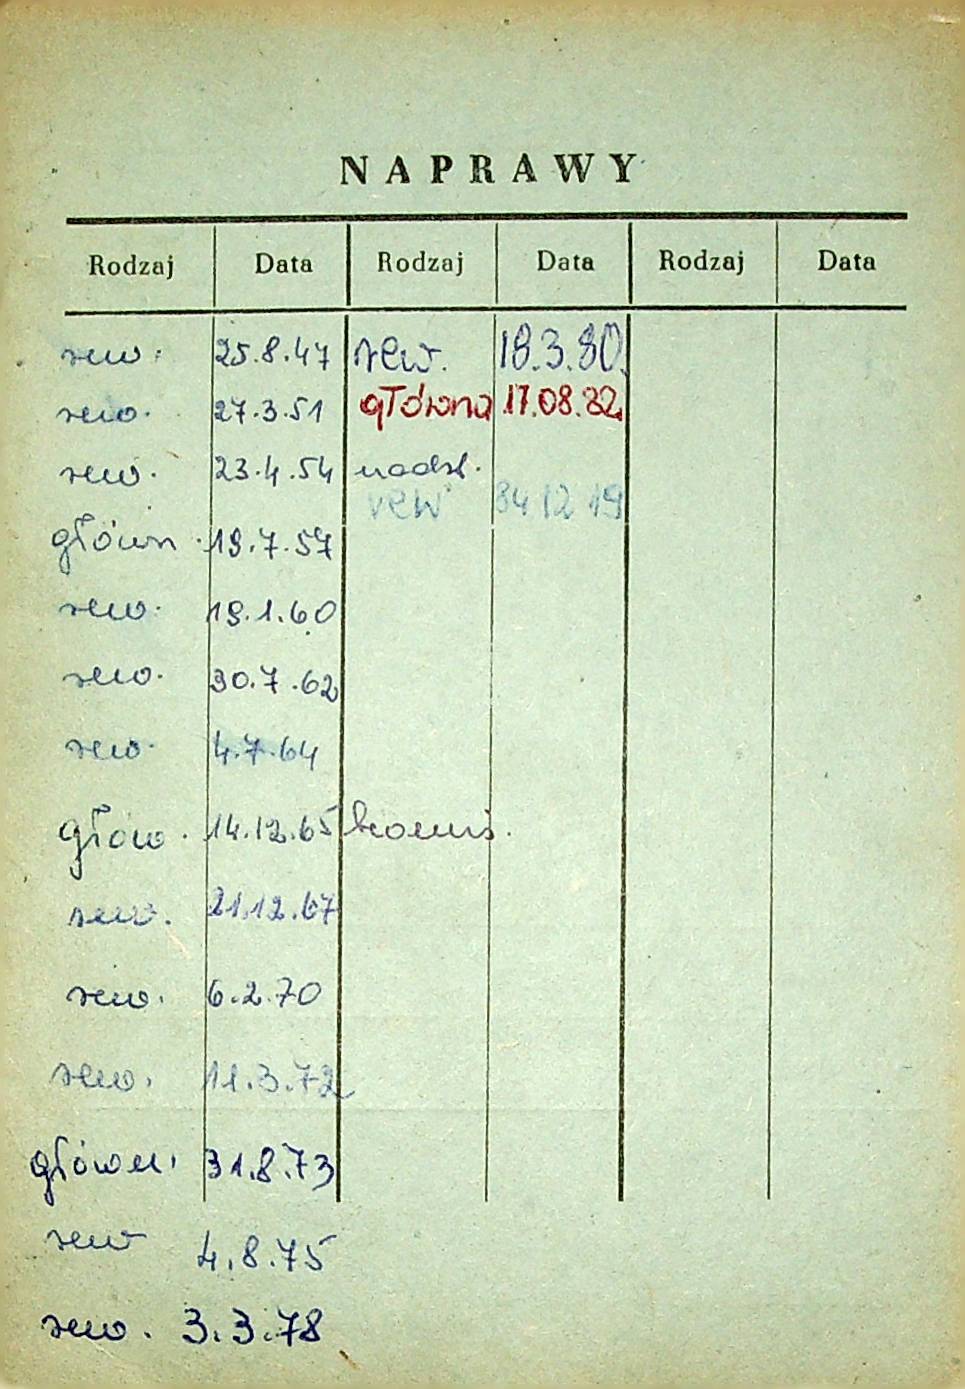 NAPRAWY
Rodzaj Data Rodzaj Data Rodzaj Data
rew. 25.8.47 rew. 18.3.80.
rew. 27.3.51 główna 17.08.82
rew. 23.4.54 nadzl.
rew 84 12 19
główn. 19.7.57
rew. 19.1.60
rew. 30.7.62
rew. 4.7.64
głów. 14.12.65
rew. 21.12.67
rew. 6.2.70
rew. 11.3.72
główn. 31.8.73
rew 4.8.75
rew. 3.3.78